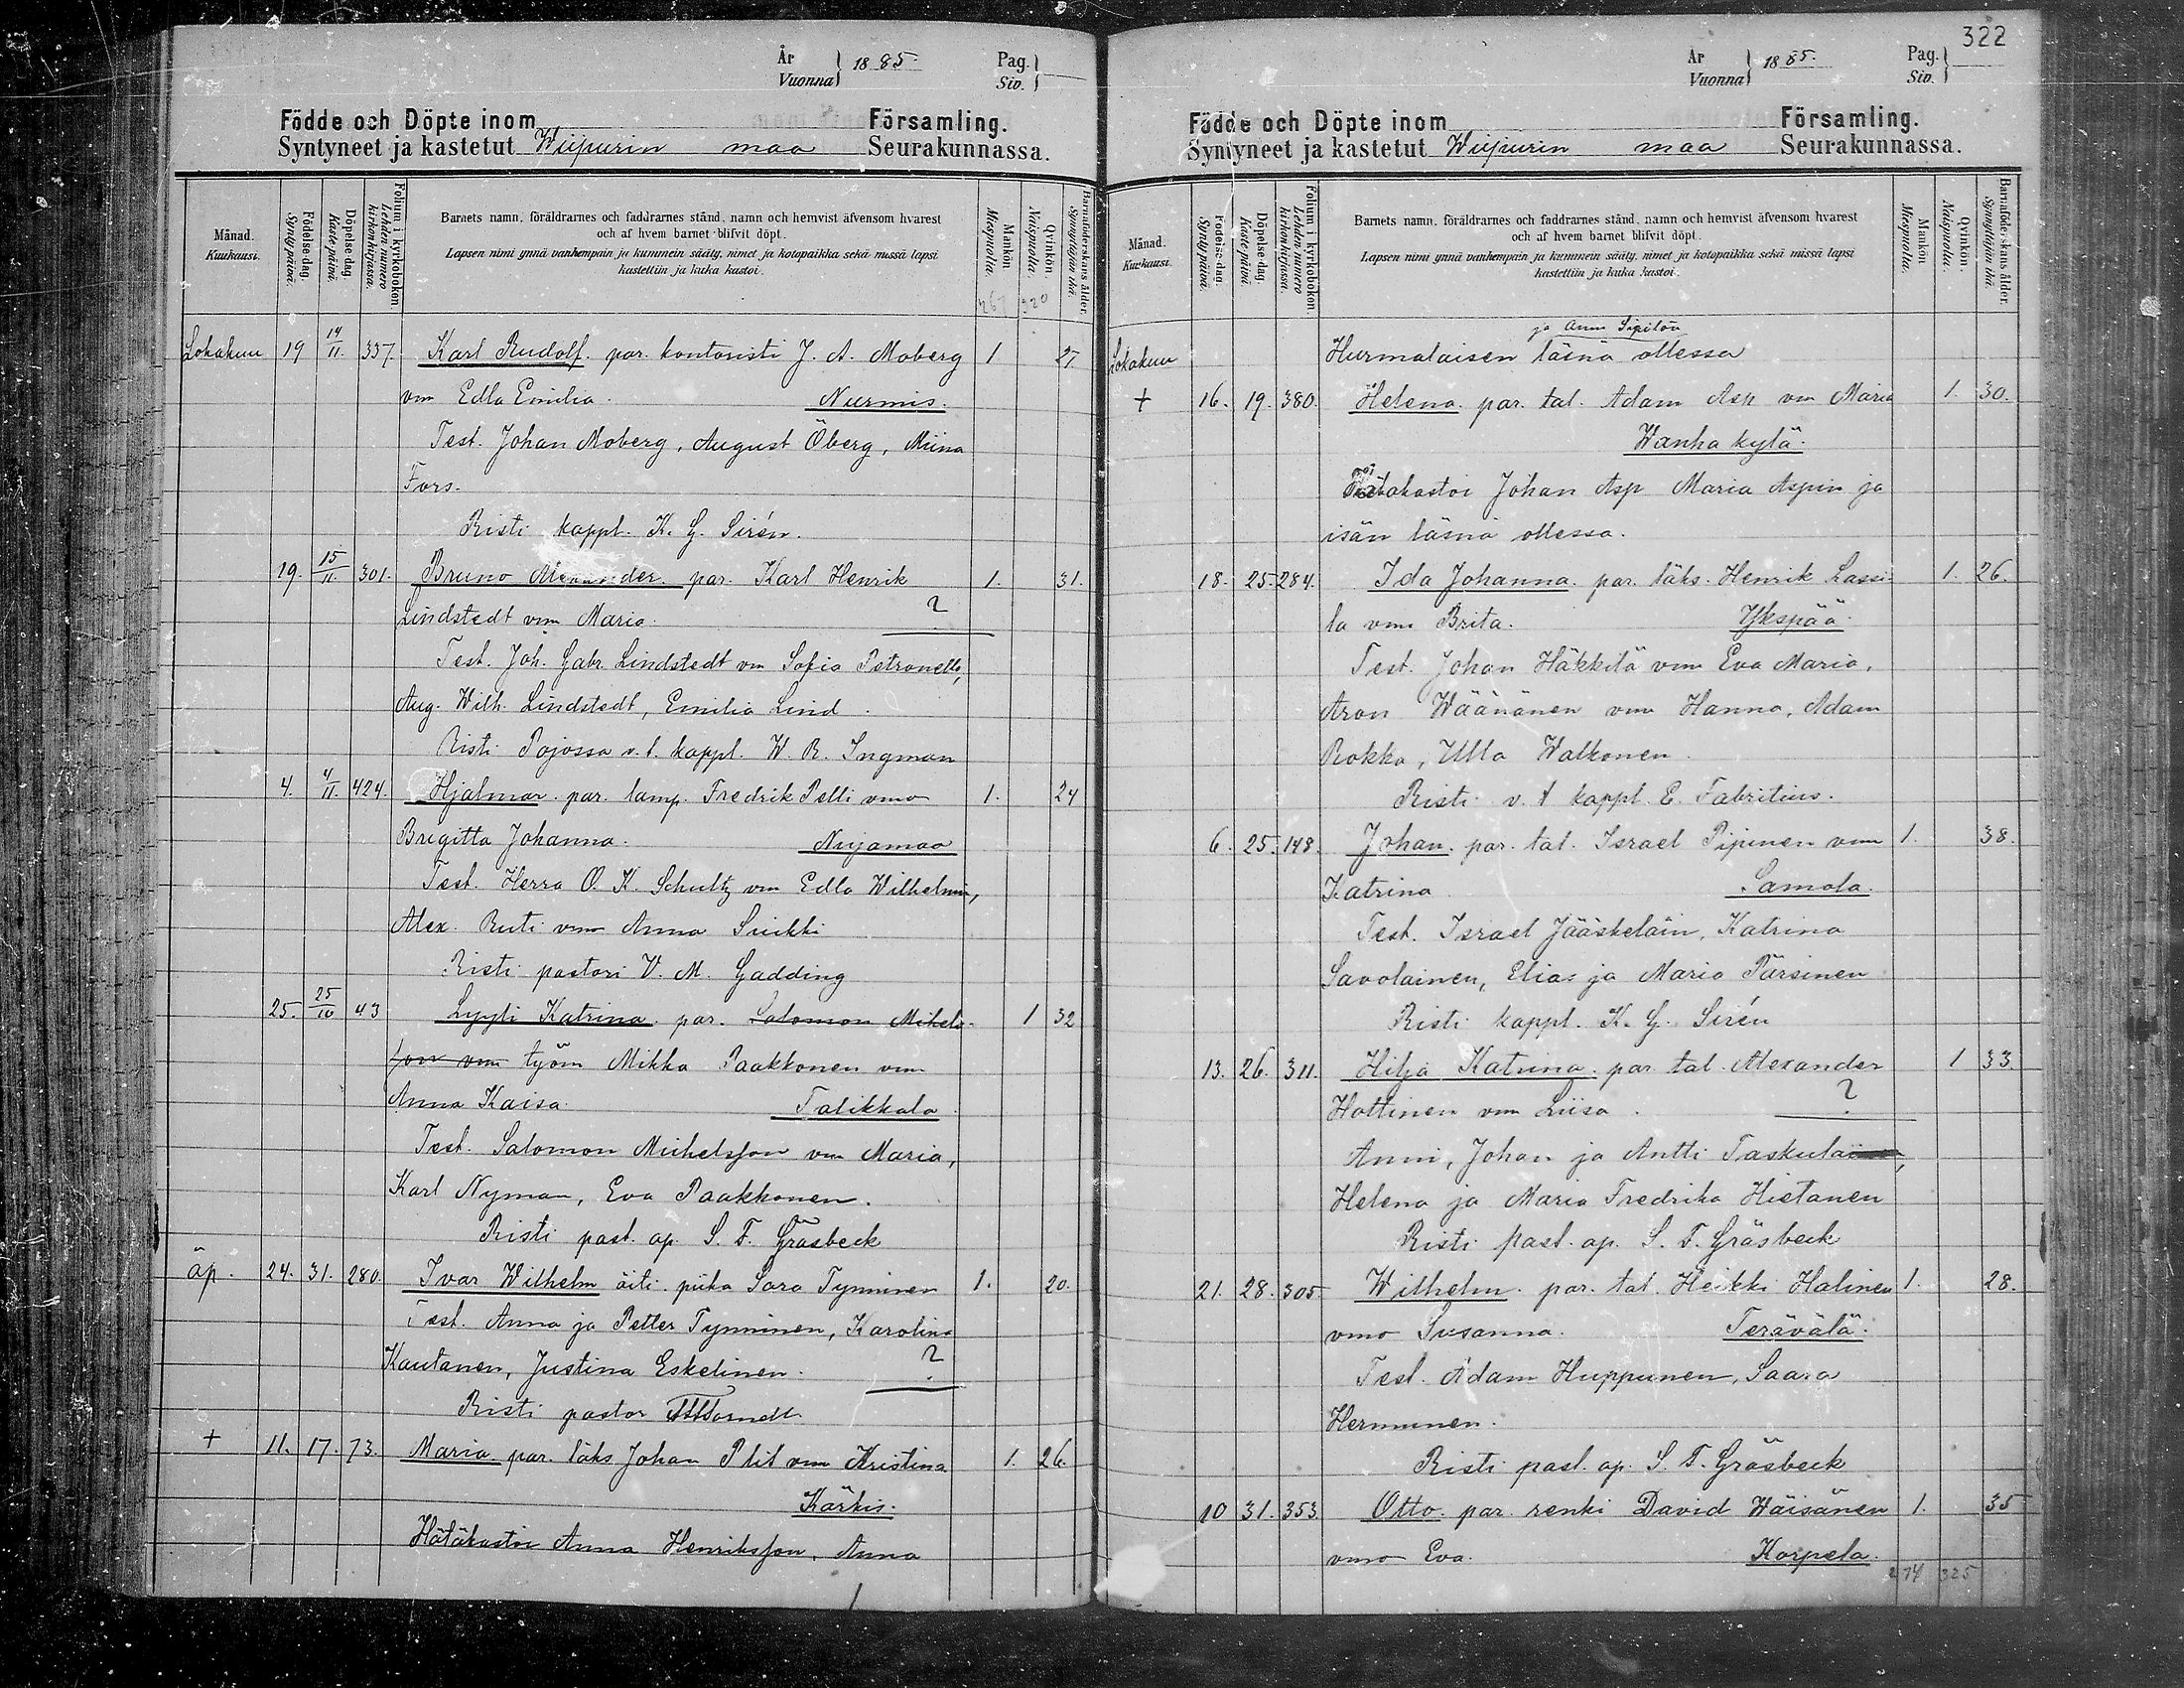 År
Vuonna } 1885.
Pag.
Siv. }
Födde och Döpte inom Församling.
Syntyneet ja kastetut Wiipurin maa Seurakunnassa.
Månad.
Kuukausi.
Födelse-dag.
Syntypäivä.
Döpelse-dag.
Kastepäivä.
Folium i kyrkoboken.
Lehden numero kirkonkirjassa.
Barnets namn, föräldrarnes och faddrarnes stånd, namn och hemvist äfvensom hvarest
och af hvem barnet blifvit döpt.
Lapsen nimi ynnä vanhempain ja kummein sääty, nimet ja kotopaikka sekä missä lapsi
kastettiin ja kuka kastoi.
Mankön.
Miespuolia.
Qvinkön.
Naispuolia.
Barnaföderskans ålder.
Synnyttäjän ikä.
267 320
Lokakuu 19 14/11. 337. Karl Rudolf. par. kontoristi J. A. Moberg 1 27.
vm Edla Emilia. Nurmis.
Test. Johan Moberg, August Öberg, Miina
Fors.
Risti kappl. K. G. Sirén.
19. 15/11. 301. Bruno Alexander par. Karl Henrik 1. 31.
Lindstedt vm Maria. ?
Test. Joh. Gabr. Lindstedt vm Sofia Petronella,
Aug. Wilh. Lindstedt, Emilia Lind.
Risti Pojossa v. t. kappl. W. R. Ingman
4. 4/11. 424. Hjalmar. par. lamp. Fredrik Pelli vmo 1. 24
Brigitta Johanna. Nuijamaa
Test. Herra O. K. Schultz vm Edla Wilhelmin,
Alex. Ruti vmo Anna Suikki
Risti pastori V. M. Gadding
25. 25/10 43 Lyyli Katrina. par. Salomon Mihels- 1 32
son vm työm Mikko Paakkonen vm
Anna Kaisa. Talikkala.
Test. Salomon Michelsson vm Maria,
Karl Nyman, Eva Paakkonen.
Risti past. ap. S. F. Gräsbeck
äp. 24. 31. 280. Ivar Wilhelm äiti piika Sara Tynninen 1. 20.
Test. Anna ja Petter Tynninen, Karolina
Kautanen, Justina Eskelinen. ?
Risti pastor
+ 11. 17. 73. Maria. par. läks Johan Plit vm Kristina 1. 26.
Kärkis.
Hätäkastoi Anna Henriksson, Anna
322
År
Vuonna } 1885.
Pag.
Siv. }
Födde och Döpte inom Församling.
Syntyneet ja kastetut Wiipurin maa Seurakunnassa.
Månad.
Kuukausi.
Födelse-dag.
Syntypäivä.
Döpelse-dag.
Kastepäivä.
Folium i kyrkoboken.
Lehden numero kirkonkirjassa.
Barnets namn, föräldrarnes och faddrarnes stånd, namn och hemvist äfvensom hvarest
och af hvem barnet blifvit döpt.
Lapsen nimi ynnä vanhempain ja kummein sääty, nimet ja kotopaikka sekä missä lapsi
kastettiin ja kuka kastoi.
Mankön.
Miespuolia.
Qvinkön.
Naispuolia.
Barnaföderskans ålder.
Synnyttäjän ikä.
ja Anna Sipilän
Lokakuu Hurmalaisen läsnä ollessa
+ 16. 19. 380. Helena. par. tal. Adam Asp vm Maria 1. 30.
Wanha kylä.
Hätäkastoi Johan Asp Maria Aspin ja
isän läsnä ollessa.
18. 25. 284. Ida Johanna. par. läks. Henrik Lassi- 1. 26.
la vmo Brita. Ykspää.
Test. Johan Häkkilä vmo Eva Maria,
Aron Wäänänen vmo Hanna, Adam
Rokka, Ulla Walkonen.
Risti v. t kappl. E. Fabritius.
6. 25. 148. Johan. par. tal. Israel Pipinen vm 1. 38.
Katrina Samola.
Test. Israel Jääskeläin, Katrina
Savolainen, Elias ja Maria Pärsinen
Risti kappl. K. G. Sirén
13. 26. 311. Hilja Katrina. par. tal. Alexander 1 33
Hottinen vm Liisa. ?
Anni, Johan ja Antti Taskulainen,
Helena ja Maria Fredrika Hietanen
Risti past. ap. S. F. Gräsbeck
21. 28. 305. Wilhelm. par. tal. Heikki Halinen 1. 28.
vmo Susanna. Terävälä.
Test. Adam Huppunen, Saara
Hermunen.
Risti past. ap. S. F. Gräsbeck
10 31. 353. Otto. par. renki David Wäisänen 1. 35
vmo Eva. Korpela.
274 325